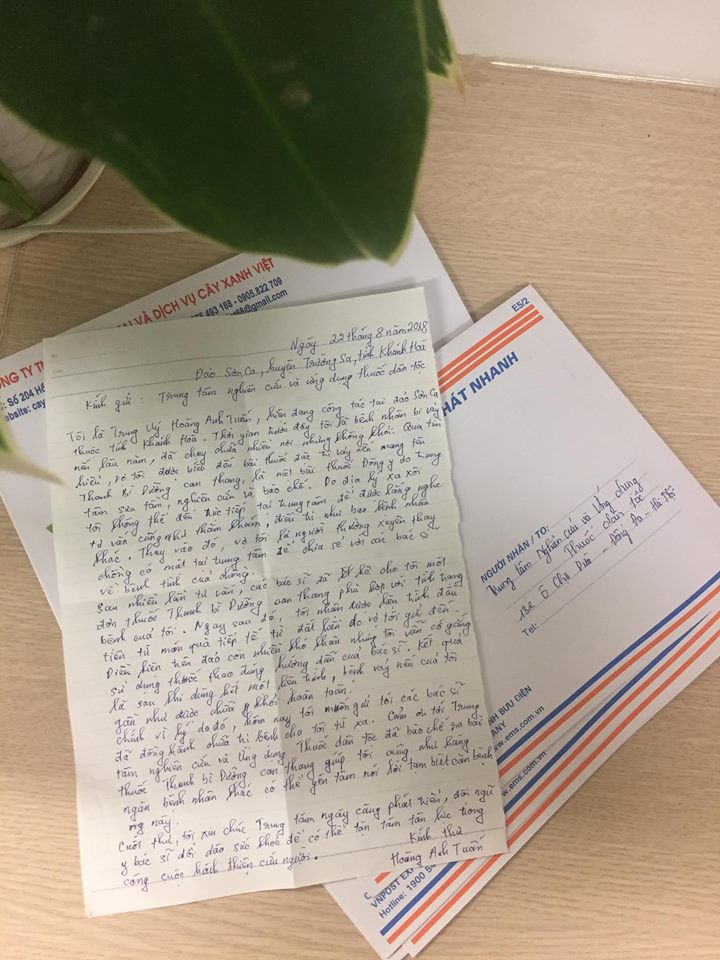 ẠI VÀ DỊCH VỤ CÂY XANH VIỆT
493 188 - 0905.822 709
@gmail.com
NG TY TN
: Số 204 H
website: cay
Ngày 22 tháng 8 năm 2018
Đảo Sơn Ca, huyện Trường Sa, tỉnh Khánh Hoà
Kính gửi: Trung tâm nghiên cứu và ứng dụng thuốc dân tộc
Tôi là Trung uý Hoàng Anh Tuấn, hiện đang công tác tại đảo Sơn Ca
thuộc tỉnh Khánh Hoà. Thời gian trước đây tôi là bệnh nhân bị vảy
nến lâu năm, đã chạy chữa nhiều nơi nhưng không khỏi. Qua tìm
hiểu, vợ tôi được biết đến bài thuốc đặc trị vảy nến mang tên
Thanh Bì Dưỡng can thang, là một bài thuốc Đông y do trung
tâm sưu tầm, nghiên cứu và bào chế. Do địa lý xa xôi
tôi không thể đến trực tiếp tại trung tâm để được lắng nghe
tư vấn cũng như thăm khám, điều trị như bao bệnh nhân
khác. Thay vào đó, vợ tôi là người thường xuyên thay
chồng có mặt tại trung tâm để chia sẻ với các bác sĩ
về bệnh tình của chồng.
Sau nhiều lần tư vấn, các bác sĩ đã kê cho tôi một
đơn thuốc Thanh bì Dưỡng can thang phù hợp với tình trạng
bệnh của tôi. Ngay sau đó, tôi nhận được liệu trình đầu
tiên từ món quà tiếp tế từ đất liền do vợ tôi gửi đến.
Điều kiện trên đảo còn nhiều khó khăn nhưng tôi vẫn cố gắng
sử dụng thuốc theo đúng hướng dẫn của bác sĩ. Kết quả,
là sau khi dùng hết một liệu trình, bệnh vảy nến của tôi
gần như được chữa khỏi hoàn toàn.
Chính vì lý do đó, hôm nay tôi muốn gửi tới các bác sĩ
đã đồng hành chữa trị bệnh cho tôi từ xa. Cảm ơn tới Trung
tâm nghiên cứu và Ứng dụng Thuốc dân tộc đã bào chế ra bài
thuốc Thanh bì Dưỡng can thang giúp tôi cũng như hàng
ngàn bệnh nhân khác có thể yên tâm nói lời tạm biệt căn bệnh
này.
Cuối thư, tôi xin chúc Trung tâm ngày càng phát triển, đội ngũ
y bác sĩ dồi dào sức khoẻ để có thể tận tâm tận lực trong
công cuộc hành thiện cứu người.
Kính thư
Hoàng Anh Tuấn
E5/2
HÁT NHANH
NGƯỜI NHẬN / TO:
Trung tâm Nghiên cứu và Ứng dụng
Thuốc dân tộc
Chợ Dừa - Đống Đa - Hà Nội
Tel:
NH BƯU ĐIỆN
ANY
w.ems.com.vn
www.ems.com.vn
VNPOST EXP
Hotline: 1900 54